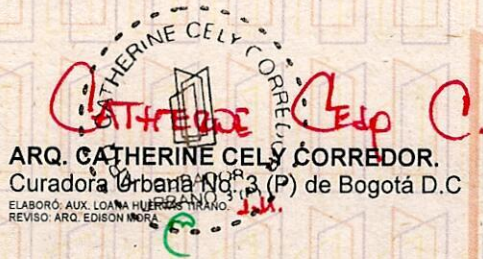 CATHERINE CELY CORREDOR
CURADOR
URBANO 3 (P)
CATHERINE Cely C.
ARQ. CATHERINE CELY CORREDOR.
Curadora Urbana No. 3 (P) de Bogotá D.C
ELABORÓ: AUX. LOANA HUERTAS TIRANO.
REVISO: ARQ. EDISON MORA.